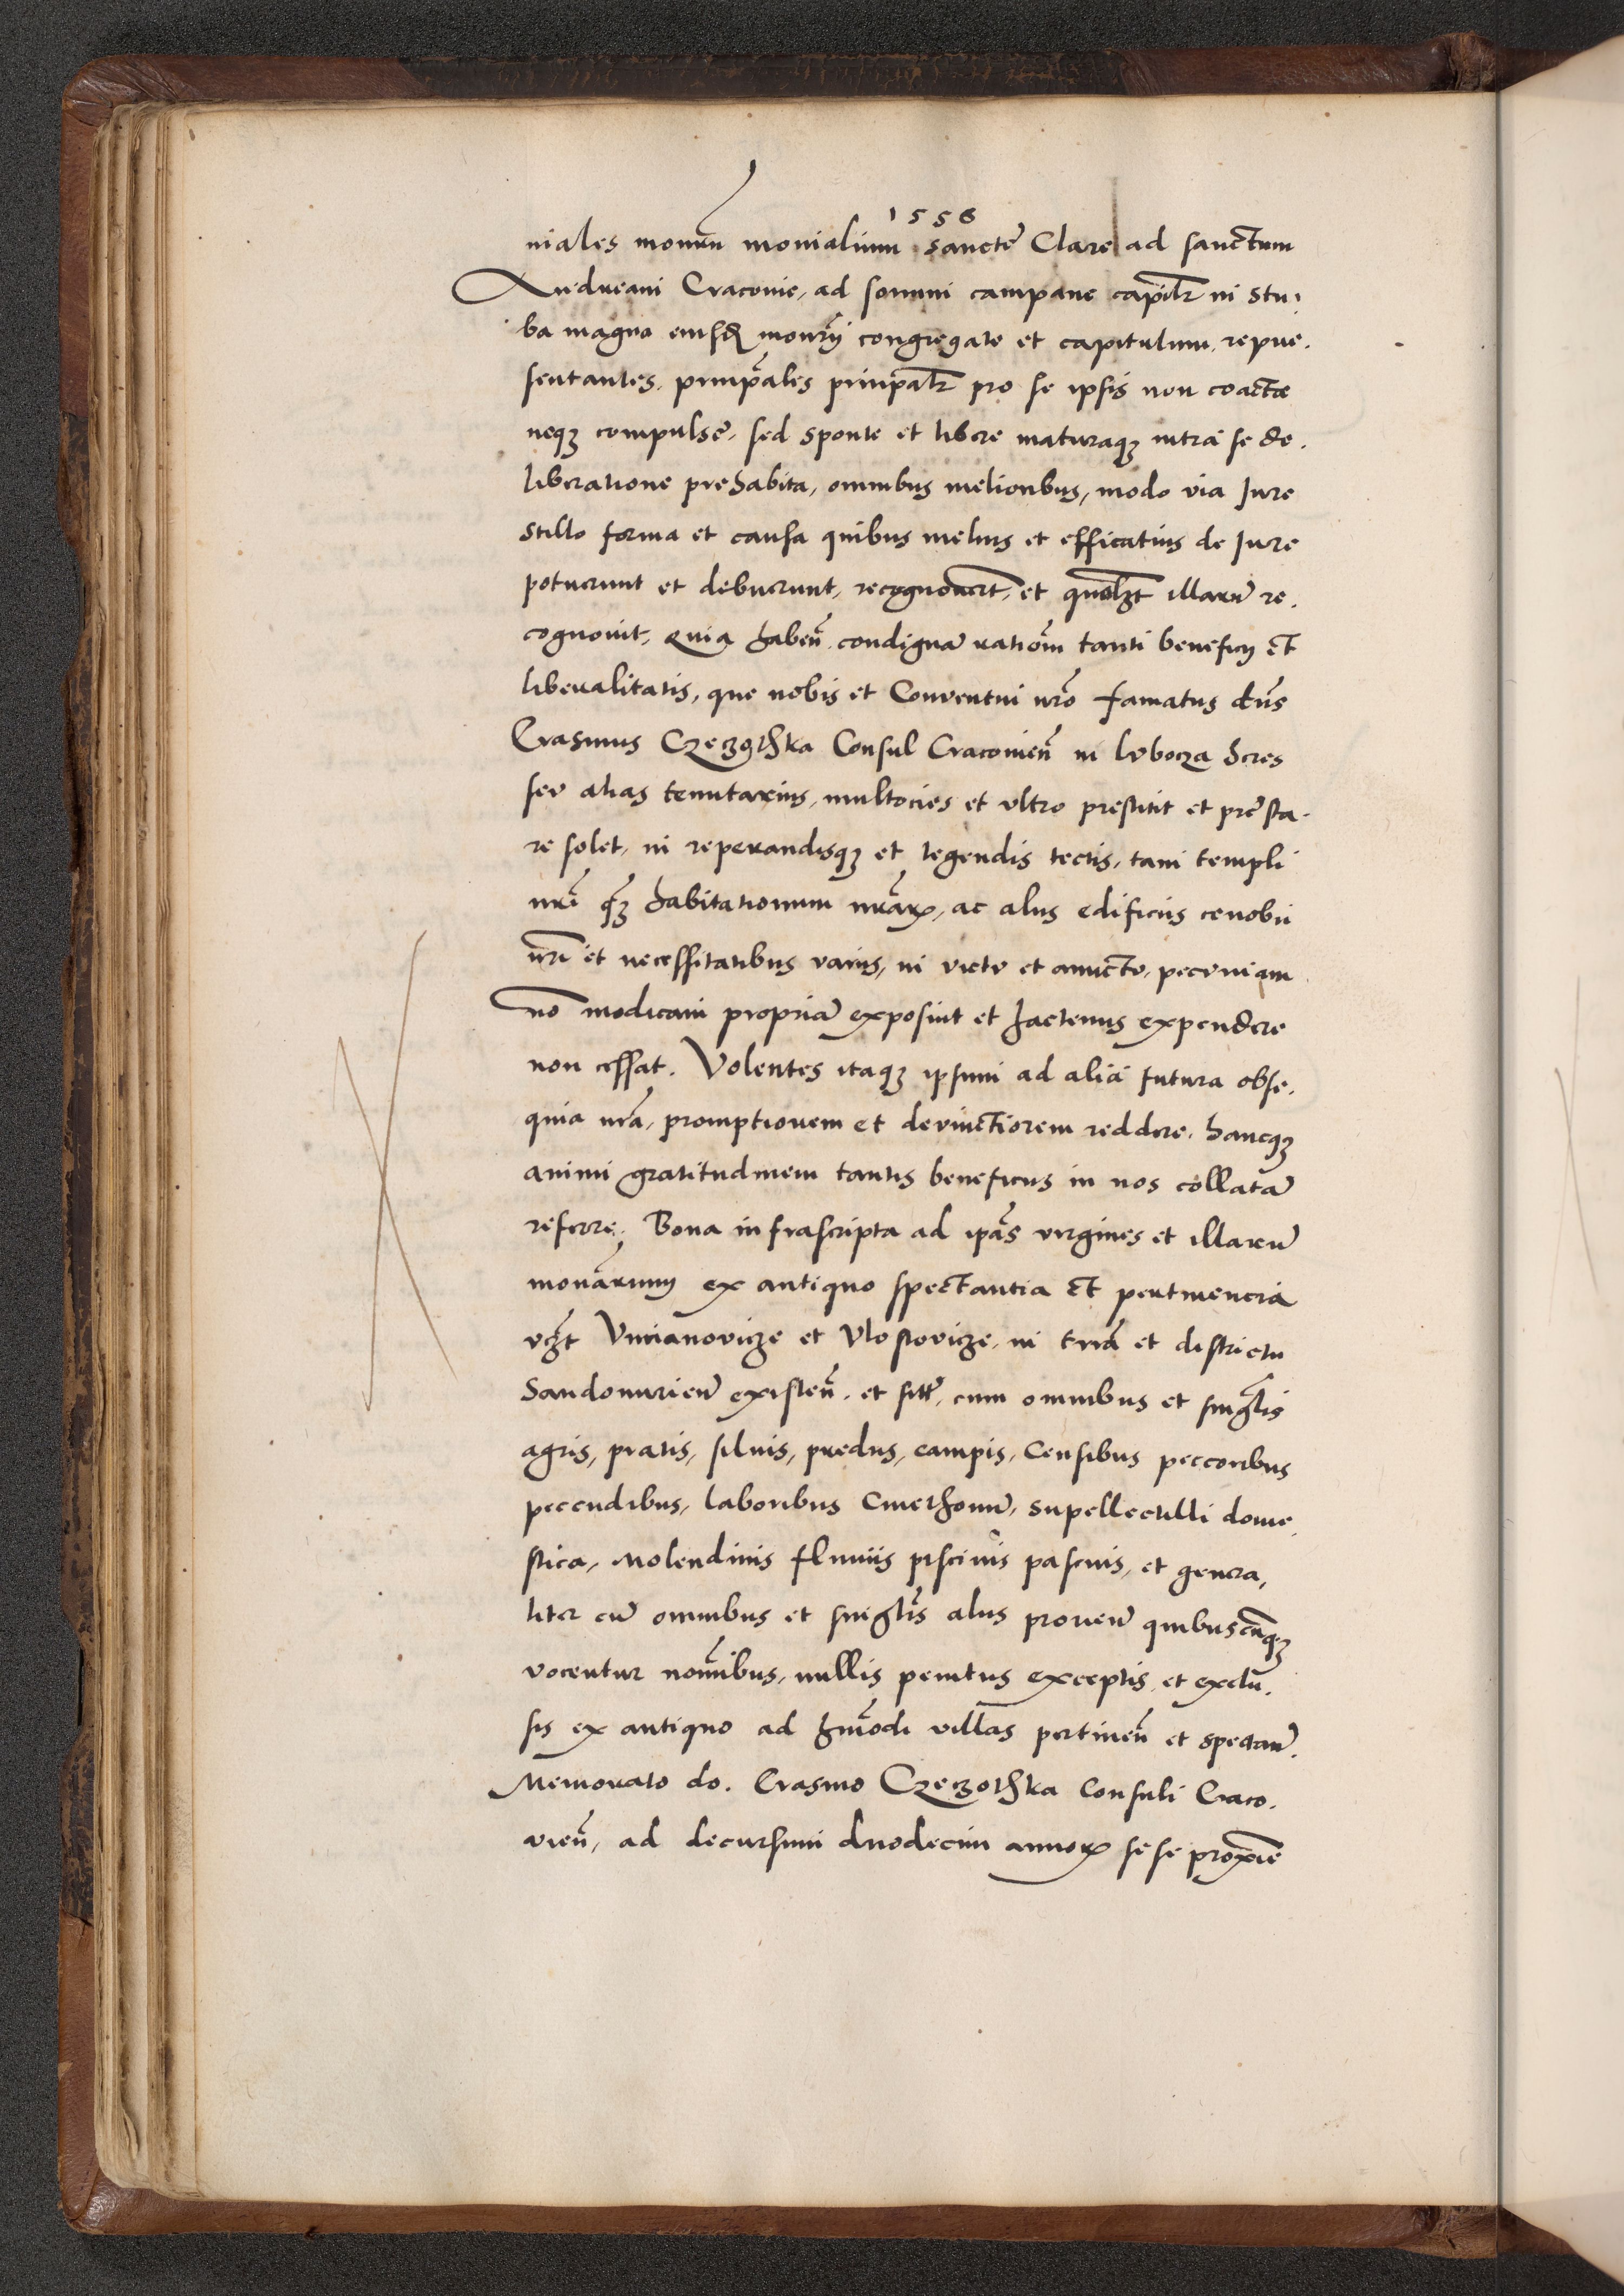 1558
niales monrn monialium sancte Clare ad sanctum
Andream Cracovie, ad sonum campane capitlr in stu-
ba magna eiusd monrij congregate et capitulum repre-
sentantes. principales prinpalr pro se ipsis non coacte
neqz compulse, sed sponte et libere maturaqz intra se de-
liberatione prehabita, omnibus melioribus, modo via Jure
stillo forma et causa quibus melius et efficatius de Jure
potuerunt et debuerunt, recognovert, et quelzt illarum re-
cognovit, Quia haben condignam rationem tanti beneficij et
liberalitatis, que nobis et Conventui nro famatus dns
Erasmus Czeczothka Consul Cracovien in lubocza heres
seu alias tenutarius, multocies et ultro prestitit et presta-
re solet, in reperandisqz et tegendis tectis, tam templi
nri qz habitationum nrarum, ac aliis edificiis cenobii
nri et necessitatibus variis, in victu et amictu, pecuniam
no modicam propriam exposuit et hactenus expendere
non cessat. Volentes itaqz ipsum ad alia futura obse-
quia nra, promptiorem et devinctiorem reddere, hancqz
animi gratitudinem tantis beneficiis in nos collatam
referre. Bona infrascripta ad ipas virgines et illarum
monarium ex antiquo spectantia et pertinencia
vzt Vmianovicze et Vlostovicze, in terra et districtu
Sandomirien existen. et sitt, cum omnibus et singlis
agris, pratis, silvis, prediis, campis, Censibus peccoribus
peccudibus, laboribus Cmethonum, supellectilli dome-
stica, Molendinis fluviis piscinis pascuis, et genera-
liter cum omnibus et singlis aliis proven quibuscunqz
vocentur nominibus, nullis penitus exceptis et exclu-
sis ex antiquo ad hmodi villas pertinen et spectan.
Memorato do. Erasmo Czeczothka Consuli Craco-
vien, ad decursum duodecim annorum sese proxime